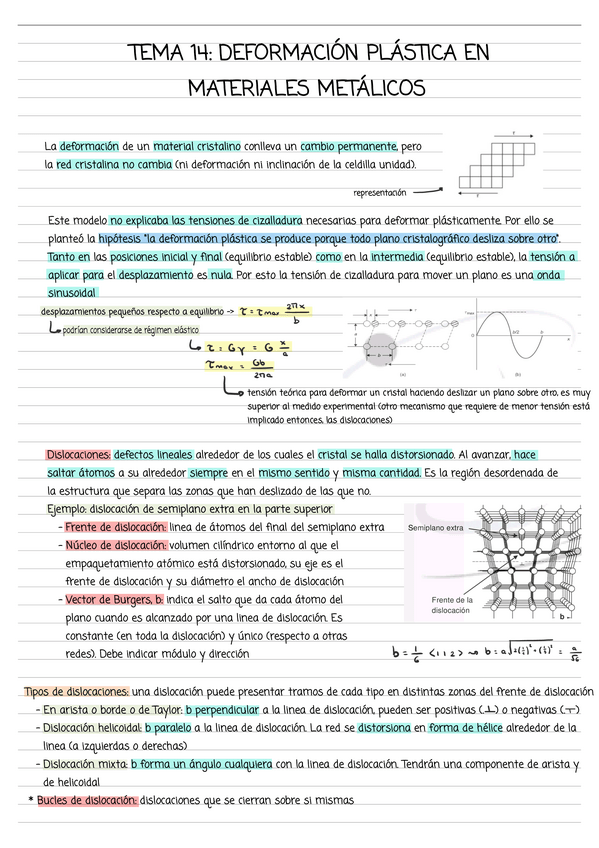 TEMA 14: DEFORMACIÓN PLÁSTICA EN
MATERIALES METÁLICOS
La deformación de un material cristalino conlleva un cambio permanente, pero
la red cristalina no cambia (ni deformación ni inclinación de la celdilla unidad).
representación
Este modelo no explicaba las tensiones de cizalladura necesarias para deformar plásticamente. Por ello se
planteó la hipótesis "la deformación plástica se produce porque todo plano cristalográfico desliza sobre otro".
Tanto en las posiciones inicial y final (equilibrio estable) como en la intermedia (equilibrio estable), la tensión a
aplicar para el desplazamiento es nula. Por esto la tensión de cizalladura para mover un plano es una onda
sinusoidal
desplazamientos pequeños respecto a equilibrio -> τ = τmax 2πx/b
podrían considerarse de régimen elástico
τ = Gγ = G x/a
τmax = Gb/2πa
(a)
(b)
tensión teórica para deformar un cristal haciendo deslizar un plano sobre otro, es muy
superior al medido experimental (otro mecanismo que requiere de menor tensión está
implicado entonces, las dislocaciones)
Dislocaciones: defectos lineales alrededor de los cuales el cristal se halla distorsionado. Al avanzar, hace
saltar átomos a su alrededor siempre en el mismo sentido y misma cantidad. Es la región desordenada de
la estructura que separa las zonas que han deslizado de las que no.
Ejemplo: dislocación de semiplano extra en la parte superior
- Frente de dislocación: linea de átomos del final del semiplano extra
- Núcleo de dislocación: volumen cilíndrico entorno al que el
empaquetamiento atómico está distorsionado, su eje es el
frente de dislocación y su diámetro el ancho de dislocación
- Vector de Burgers, b: indica el salto que da cada átomo del
plano cuando es alcanzado por una linea de dislocación. Es
constante (en toda la dislocación) y único (respecto a otras
redes). Debe indicar módulo y dirección
Semiplano extra
Frente de la
dislocación
b
b = 1/6 <112> → b = a√2(1/6)²+(2/6)² = a/√6
Tipos de dislocaciones: una dislocación puede presentar tramos de cada tipo en distintas zonas del frente de dislocación
- En arista o borde o de Taylor: b perpendicular a la linea de dislocación, pueden ser positivas (⊥) o negativas (⊤)
- Dislocación helicoidal: b paralelo a la linea de dislocación. La red se distorsiona en forma de hélice alrededor de la
linea (a izquierdas o derechas)
- Dislocación mixta: b forma un ángulo cualquiera con la linea de dislocación. Tendrán una componente de arista y
de helicoidal
* Bucles de dislocación: dislocaciones que se cierran sobre si mismas